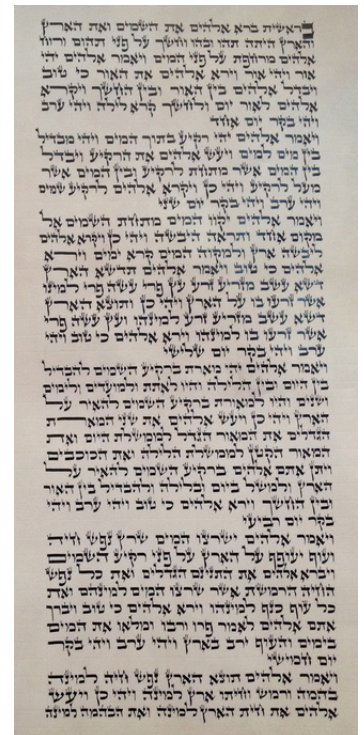 בראשית ברא אלהים את השמים ואת הארץ
והארץ היתה תהו ובהו וחשך על פני תהום ורוח
אלהים מרחפת על פני המים ויאמר אלהים יהי
אור ויהי אור וירא אלהים את האור כי טוב
ויבדל אלהים בין האור ובין החשך ויקרא
אלהים לאור יום ולחשך קרא לילה ויהי ערב
ויהי בקר יום אחד
ויאמר אלהים יהי רקיע בתוך המים ויהי מבדיל
בין מים למים ויעש אלהים את הרקיע ויבדל
בין המים אשר מתחת לרקיע ובין המים אשר
מעל לרקיע ויהי כן ויקרא אלהים לרקיע שמים
ויהי ערב ויהי בקר יום שני
ויאמר אלהים יקוו המים מתחת השמים אל
מקום אחד ותראה היבשה ויהי כן ויקרא אלהים
ליבשה ארץ ולמקוה המים קרא ימים וירא
אלהים כי טוב ויאמר אלהים תדשא הארץ
דשא עשב מזריע זרע עץ פרי עשה פרי למינו
אשר זרעו בו על הארץ ויהי כן ותוצא הארץ
דשא עשב מזריע זרע למינהו ועץ עשה פרי
אשר זרעו בו למינהו וירא אלהים כי טוב ויהי
ערב ויהי בקר יום שלישי
ויאמר אלהים יהי מארת ברקיע השמים להבדיל
בין היום ובין הלילה והיו לאתת ולמועדים ולימים
ושנים והיו למאורת ברקיע השמים להאיר על
הארץ ויהי כן ויעש אלהים את שני המארת
הגדלים את המאור הגדל לממשלת היום ואת
המאור הקטן לממשלת הלילה ואת הכוכבים
ויתן אתם אלהים ברקיע השמים להאיר על
הארץ ולמשל ביום ובלילה ולהבדיל בין האור
ובין החשך וירא אלהים כי טוב ויהי ערב ויהי
בקר יום רביעי
ויאמר אלהים ישרצו המים שרץ נפש חיה
ועוף יעופף על הארץ על פני רקיע השמים
ויברא אלהים את התנינם הגדלים ואת כל נפש
החיה הרמשת אשר שרצו המים למינהם ואת
כל עוף כנף למינהו וירא אלהים כי טוב ויברך
אתם אלהים לאמר פרו ורבו ומלאו את המים
בימים והעוף ירב בארץ ויהי ערב ויהי בקר
יום חמישי
ויאמר אלהים תוצא הארץ נפש חיה למינה
בהמה ורמש וחיתו ארץ למינה ויהי כן ויעש
אלהים את חית הארץ למינה ואת הבהמה למינה